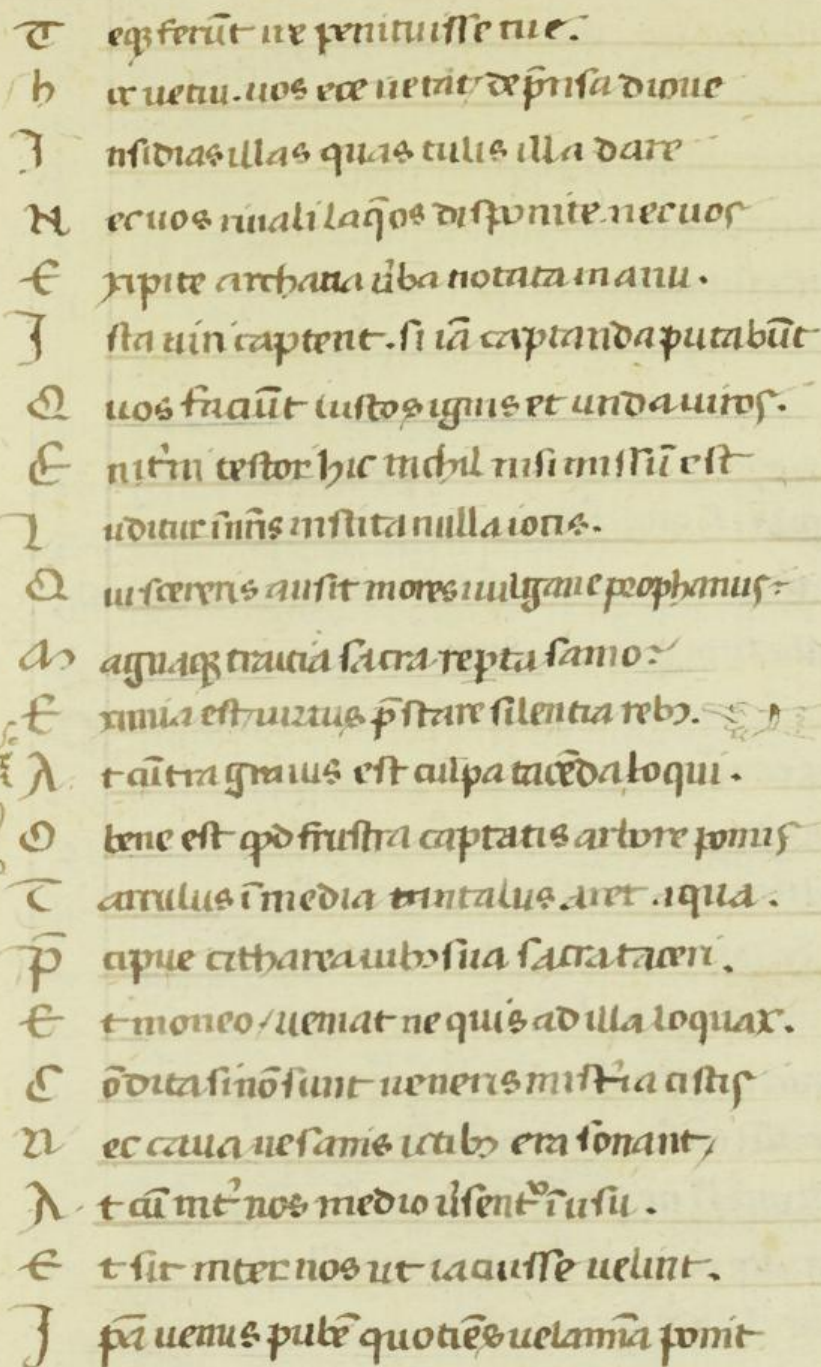 T eqꝫ ferūt ne penituisse tue.
h ec uetui. uos ecce uetat dep̄nsa dione
I nsidias illas quas tulit illa dare
N ec uos riuali laq̄os disponite nec uos
E xipite archana u̾ba notata manu.
I sta uiri captent. si iā captanda putabūt
Q uos faciūt iustos ignis et unda uiros.
E n it̾m testor hic nichil nisi missū est
L uditur ī nr̄is instita nulla iocis.
Q uis cereris ausit mores uulgare prophanus.
M agnaqꝫ traicia sacra rep̱ta samo.
E ximia est uirtus p̄stare silentia rebꝫ.
A t cūtra grauis est culpa tacēda loqui.
O bene est qđ frustra captatis arbore pomis
G arrulus ī media tantalus aret aqua.
P̄ cipue citharea iubꝫ sua sacra taceri.
E t moneo / ueniat ne quis ad illa loquax.
C ōdita si nō sunt ueneris mist̾ia cistis
N ec caua uesanis ictibꝫ era sonant /
A t cū int̾ nos medio u̾sent̾ ī usu.
E t sic inter nos ut iacuisse uelint.
I pā uenus pubē quotiēs uelamīa ponit